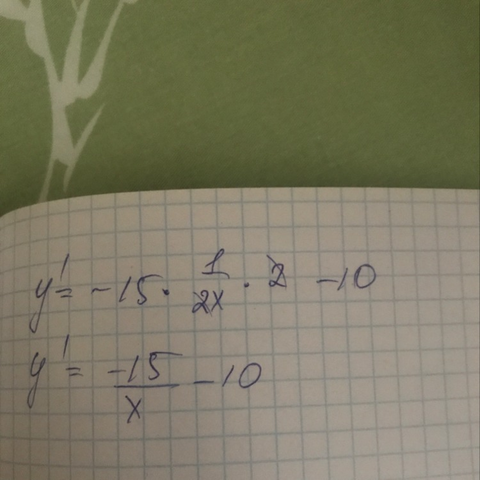 y' = -15 · 1/2x · 2 - 10
y' = -15/x - 10